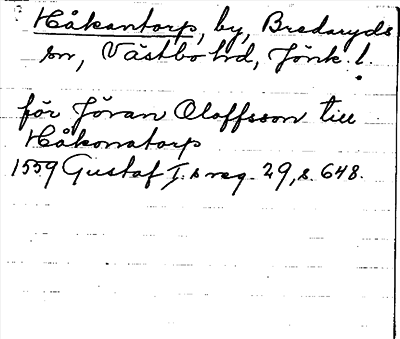 Håkantorp, by, Bredaryds
sn, Västbo hd, Jönk. l.
för Jöran Oloffsson till
Håkonatorp
1559 Gustaf I:s reg. 29, s. 648.